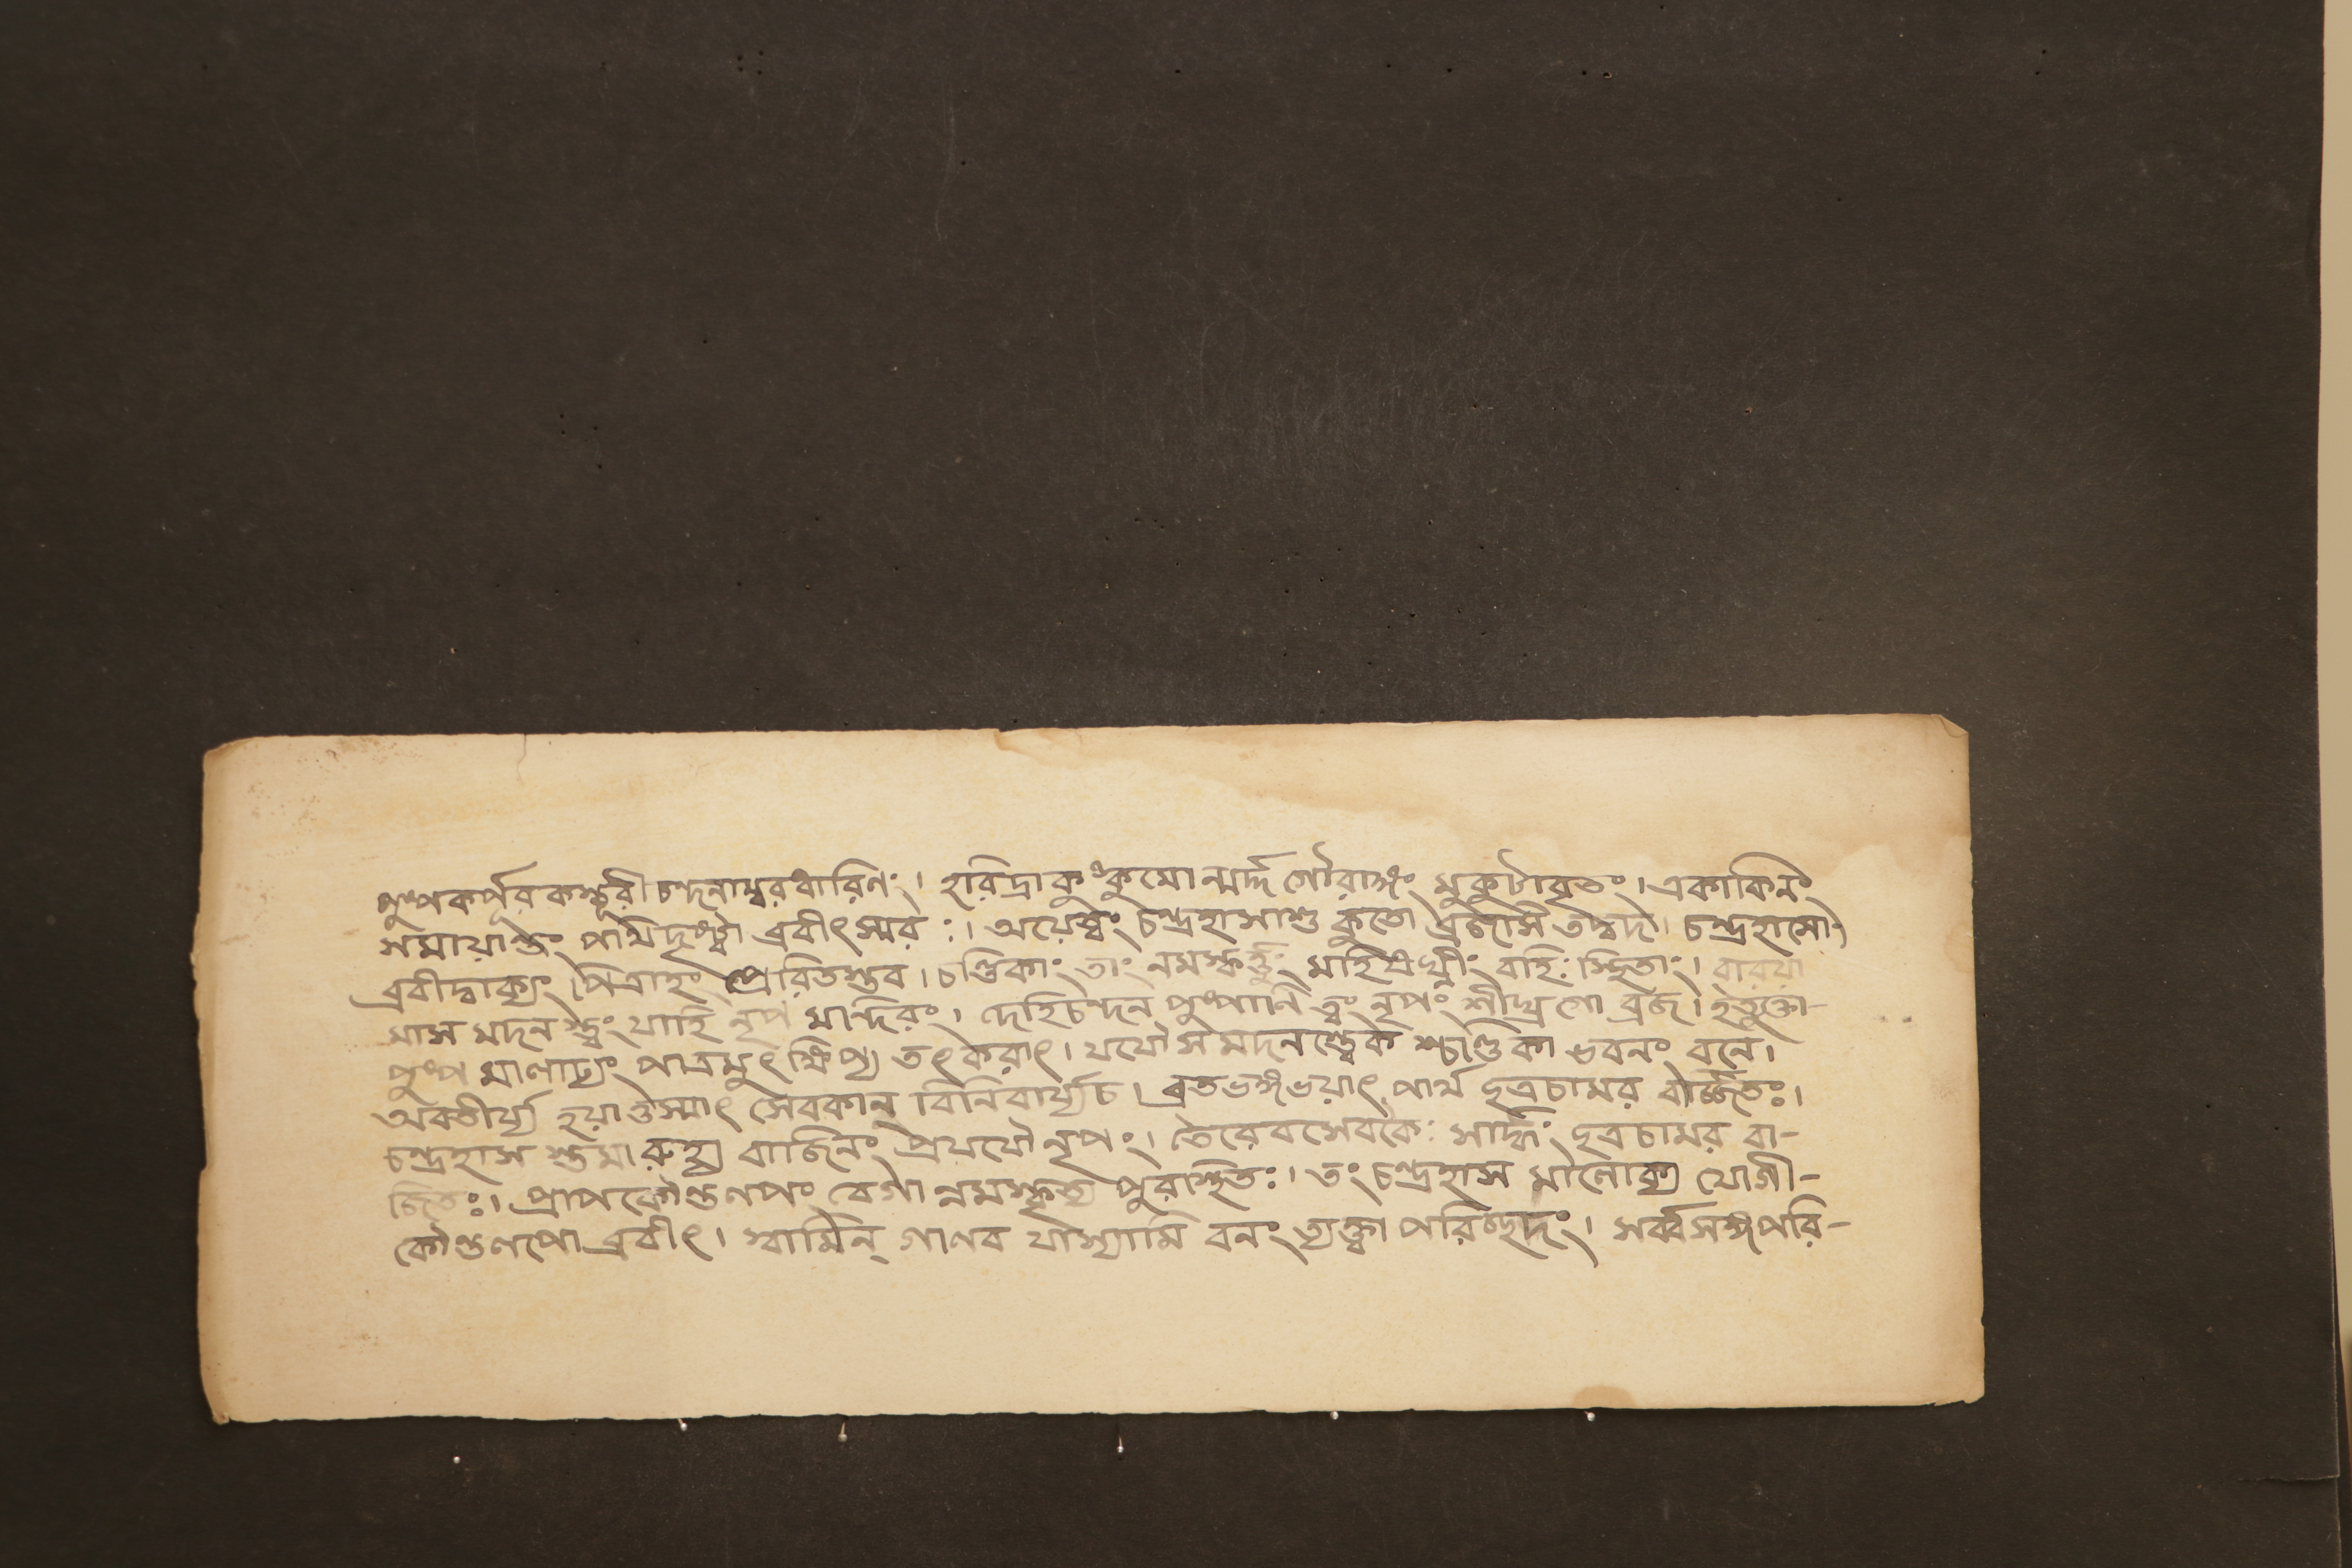 পুষ্পকর্পূরকস্তূরীচন্দনাম্বরধারিণং। হরিদ্রাকুঙ্কুমোন্মর্দ্দগৌরাঙ্গং মুকুটাবৃতং। একাকিনং
সমায়ান্তং পথিদৃষ্ট্বা ব্রবীৎস্মরঃ। অয়েত্বং চন্দ্রহাসাশু কুতো ব্রজসি তদ্বদ। চন্দ্রহাসো
ব্রবীদ্বাক্যং পিত্রাহং প্রেরিতস্তব। চণ্ডিকাং তাং নমস্কর্ত্তুং মহিষঘ্নীং বহিঃ স্থিতাং। বারয়া
মাস মদনস্ত্বং যাহি নৃপ মন্দিরং। দেহিচন্দন পুষ্পাণি ত্বং নৃপং শীঘ্রগো ব্রজ। ইত্যুক্তা-
পুষ্প মালাঢ্যং পাত্রমুৎক্ষিপ্য তৎকরাৎ। যযৌ স মদনস্ত্বেক শ্চণ্ডিকা ভবনং বনে।
অবতীর্য্য হয়াত্তস্মাৎ সেবকান্ বিনিবার্য্যচ। ব্রতভঙ্গভয়াৎ পার্থ ছত্রচামর বর্জ্জিতঃ।
চন্দ্রহাস স্তমারুহ্য বাজিনং প্রযযৌ নৃপং। তৈরেবসেবকৈঃ সার্দ্ধং ছত্রচামর বী-
জিতঃ। প্রাপকৌন্তলপং বেগা ন্নমস্কৃত্য পুরঃস্থিতঃ। তং চন্দ্রহাস মালোক্য যোগী-
কৌন্তলপো ব্রবীৎ। স্বামিন্ গালব যাস্যামি বনং ত্যক্ত্বা পরিচ্ছদং। সর্ব্বসঙ্গপরি-